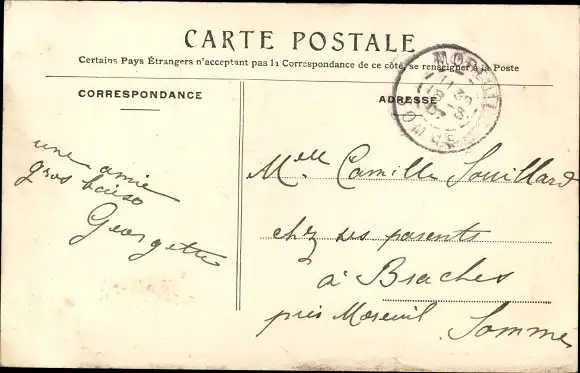 CARTE POSTALE
Certains Pays Étrangers n'acceptent pas la Correspondance de ce côté, se renseigner à la Poste
CORRESPONDANCE
ADRESSE
MOREUIL
SOMME
une amie
gros baiso
Georgette
Melle Camille Souillard
chez ses parents
à Braches
près Moreuil Somme